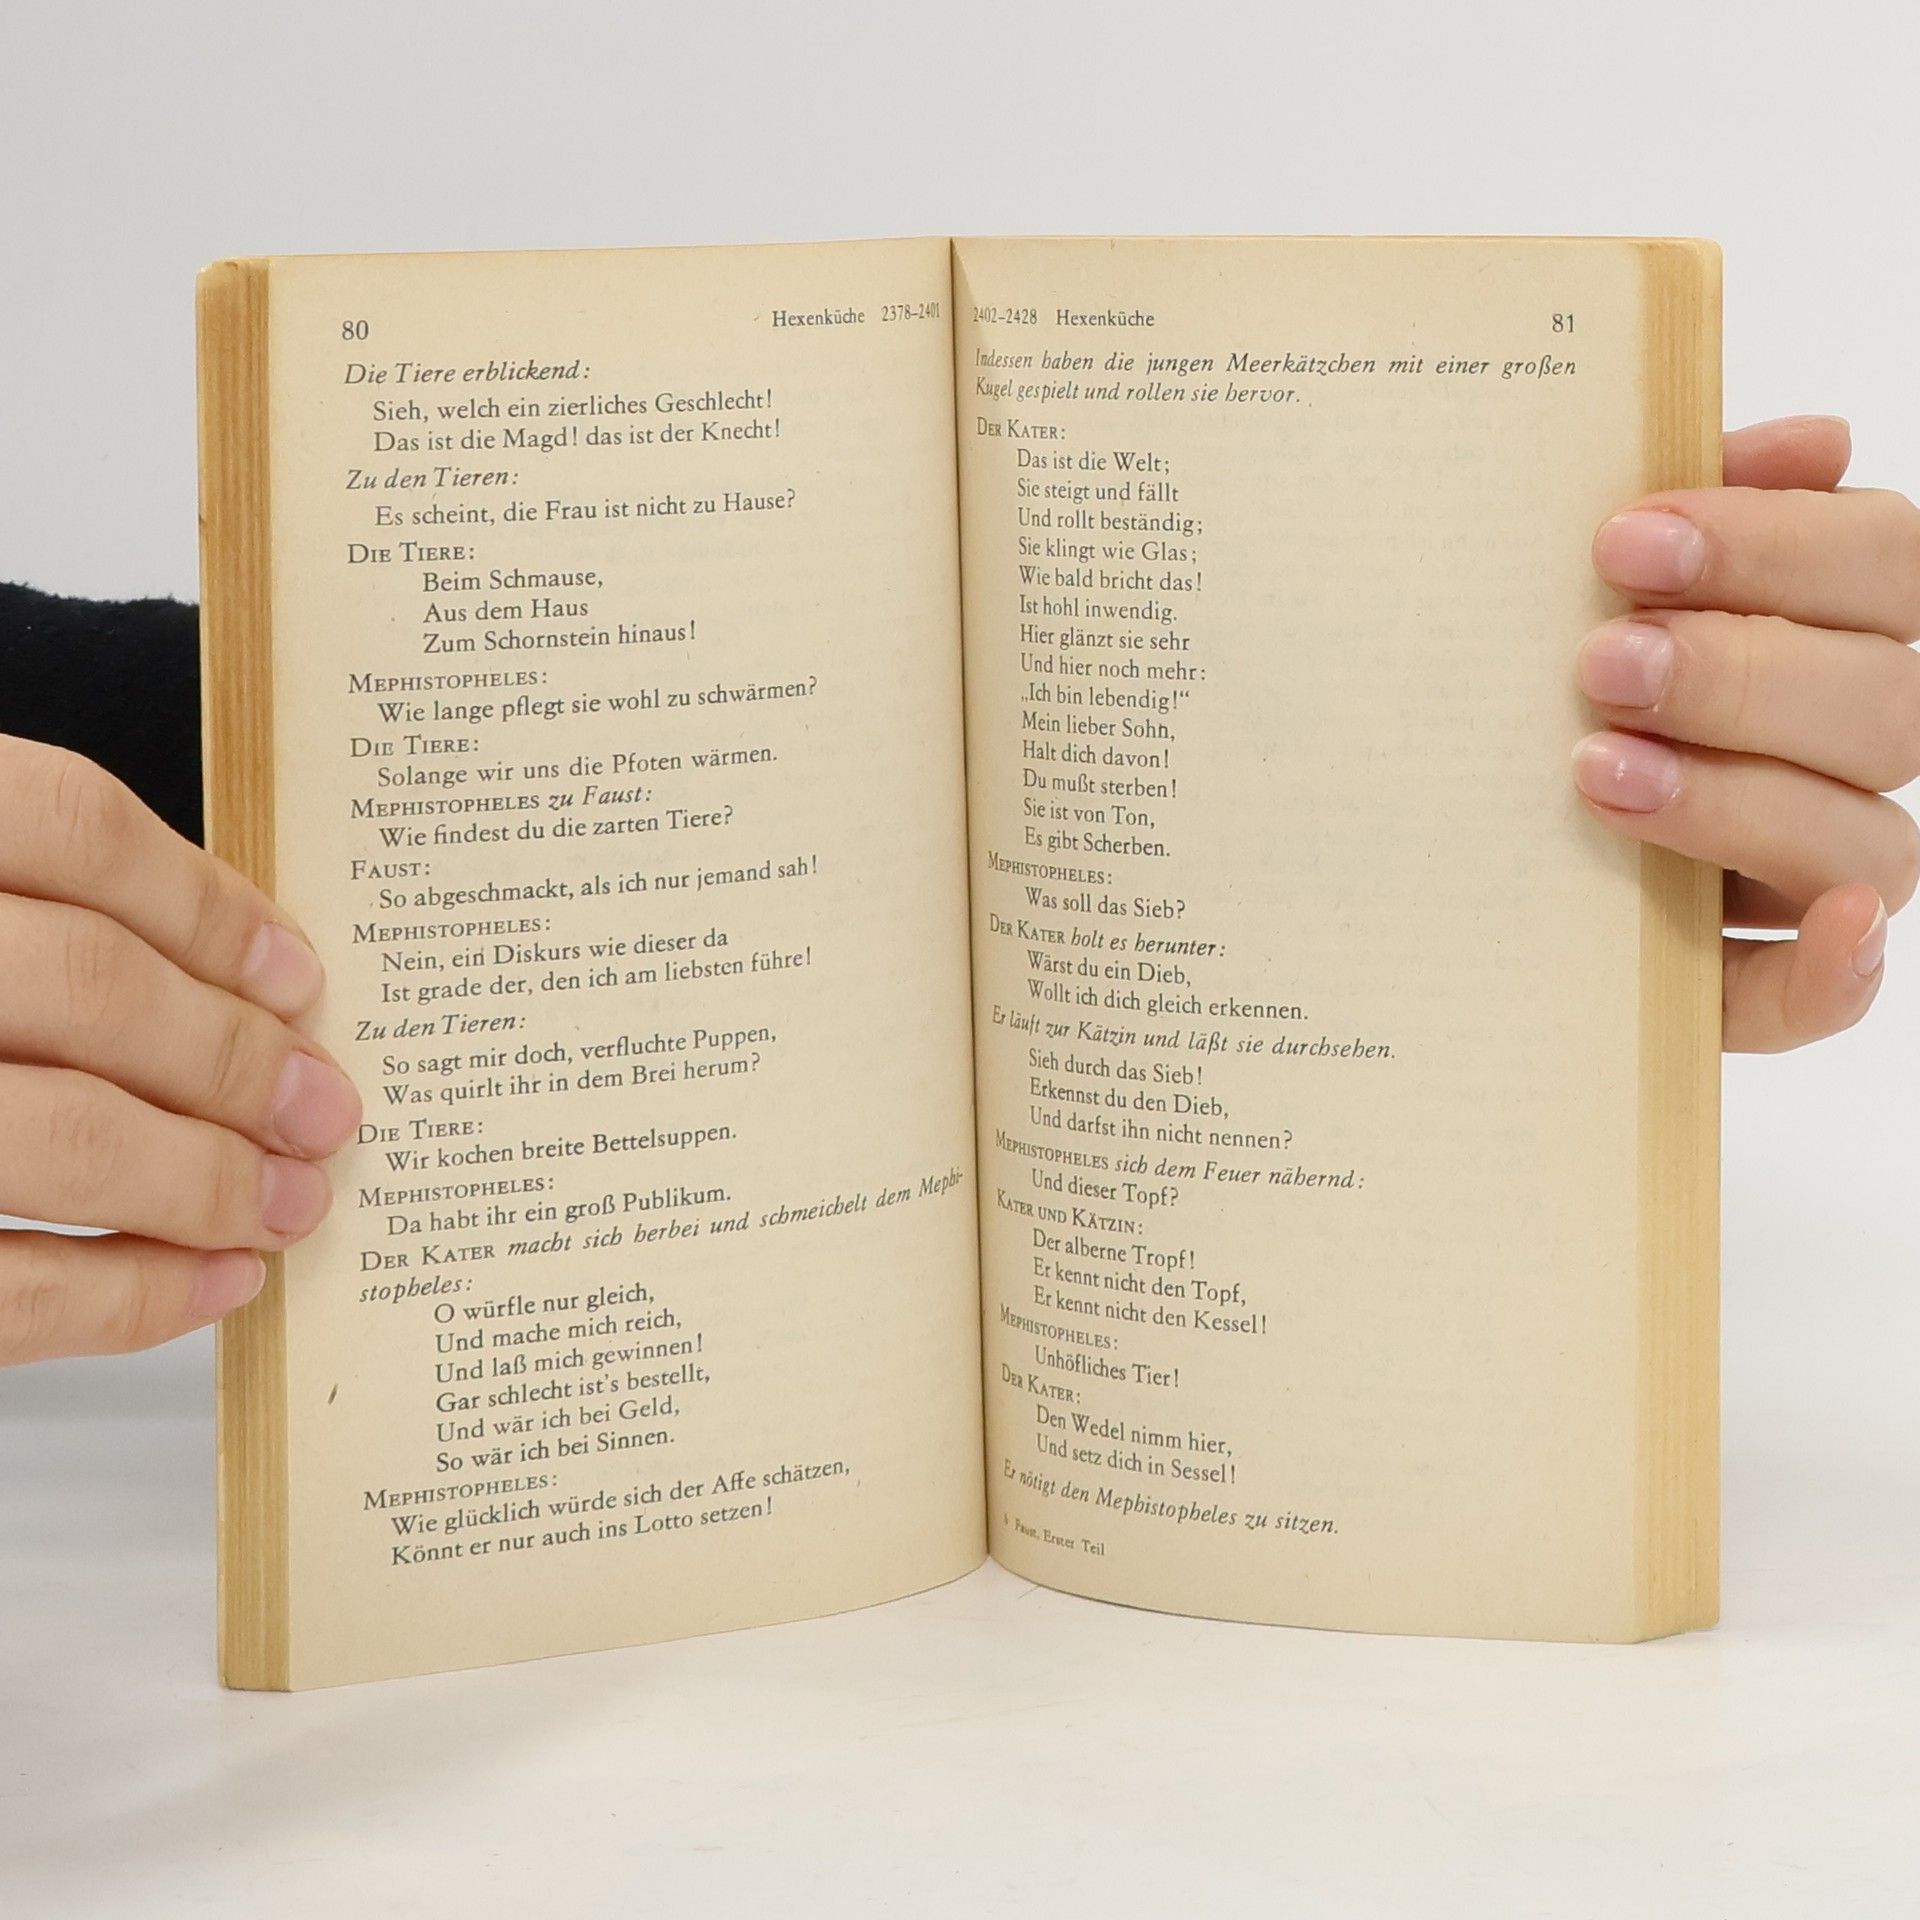 80
Hexenküche 2378–2401
Die Tiere erblickend:
Sieh, welch ein zierliches Geschlecht!
Das ist die Magd! das ist der Knecht!
Zu den Tieren:
Es scheint, die Frau ist nicht zu Hause?
DIE TIERE:
Beim Schmause,
Aus dem Haus
Zum Schornstein hinaus!
MEPHISTOPHELES:
Wie lange pflegt sie wohl zu schwärmen?
DIE TIERE:
Solange wir uns die Pfoten wärmen.
MEPHISTOPHELES zu Faust:
Wie findest du die zarten Tiere?
FAUST:
So abgeschmackt, als ich nur jemand sah!
MEPHISTOPHELES:
Nein, ein Diskurs wie dieser da
Ist grade der, den ich am liebsten führe!
Zu den Tieren:
So sagt mir doch, verfluchte Puppen,
Was quirlt ihr in dem Brei herum?
DIE TIERE:
Wir kochen breite Bettelsuppen.
MEPHISTOPHELES:
Da habt ihr ein groß Publikum.
DER KATER macht sich herbei und schmeichelt dem Mephi-
stopheles:
O würfle nur gleich,
Und mache mich reich,
Und laß mich gewinnen!
Gar schlecht ist's bestellt,
Und wär ich bei Geld,
So wär ich bei Sinnen.
MEPHISTOPHELES:
Wie glücklich würde sich der Affe schätzen,
Könnt er nur auch ins Lotto setzen!
2402–2428 Hexenküche
81
Indessen haben die jungen Meerkätzchen mit einer großen
Kugel gespielt und rollen sie hervor.
DER KATER:
Das ist die Welt;
Sie steigt und fällt
Und rollt beständig;
Sie klingt wie Glas;
Wie bald bricht das!
Ist hohl inwendig.
Hier glänzt sie sehr
Und hier noch mehr:
„Ich bin lebendig!“
Mein lieber Sohn,
Halt dich davon!
Du mußt sterben!
Sie ist von Ton,
Es gibt Scherben.
MEPHISTOPHELES:
Was soll das Sieb?
DER KATER holt es herunter:
Wärst du ein Dieb,
Wollt ich dich gleich erkennen.
Er läuft zur Kätzin und läßt sie durchsehen.
Sieh durch das Sieb!
Erkennst du den Dieb,
Und darfst ihn nicht nennen?
MEPHISTOPHELES sich dem Feuer nähernd:
Und dieser Topf?
KATER UND KÄTZIN:
Der alberne Tropf!
Er kennt nicht den Topf,
Er kennt nicht den Kessel!
MEPHISTOPHELES:
Unhöfliches Tier!
DER KATER:
Den Wedel nimm hier,
Und setz dich in Sessel!
Er nötigt den Mephistopheles zu sitzen.
Faust, Erster Teil